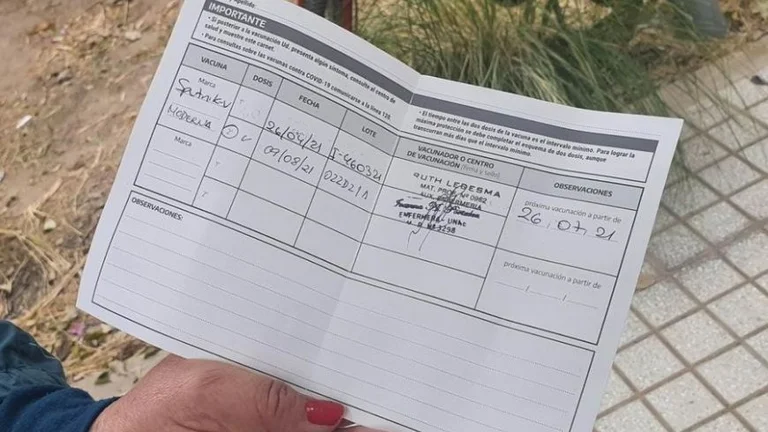 IMPORTANTE
• Si posterior a la vacunación Ud. presenta algún síntoma, consulte al centro de
salud y muestre este carnet.
• Para consultas sobre las vacunas contra COVID-19 comunicarse a la línea 120.
• El tiempo entre las dos dosis de la vacuna es el intervalo mínimo. Para lograr la
máxima protección se debe completar el esquema de dos dosis, aunque
transcurran más días que el intervalo mínimo.
VACUNA DOSIS FECHA LOTE VACUNADOR O CENTRO DE VACUNACIÓN (firma y sello) OBSERVACIONES
Marca
Sputnik V 26/04/21 I-460321
RUTH LEDESMA
AUX. ENFERMERIA
próxima vacunación a partir de
26, 07, 21
MODERNA 09/08/21
ENFERMERA UNAC
Marca
próxima vacunación a partir de
OBSERVACIONES: